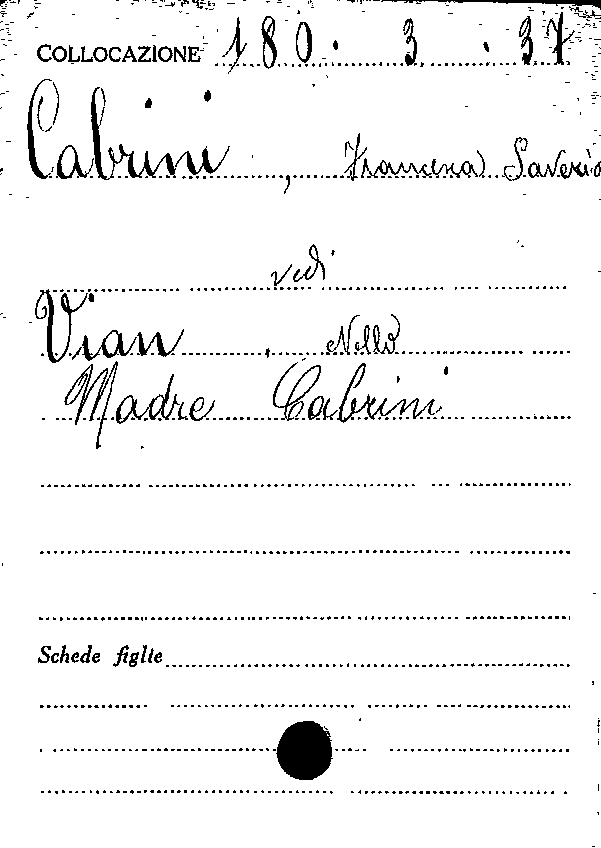 COLLOCAZIONE 180. 3. 37
Cabrini, Francesca Saverio
vedi
Vian, Nello
Madre Cabrini
Schede figlie